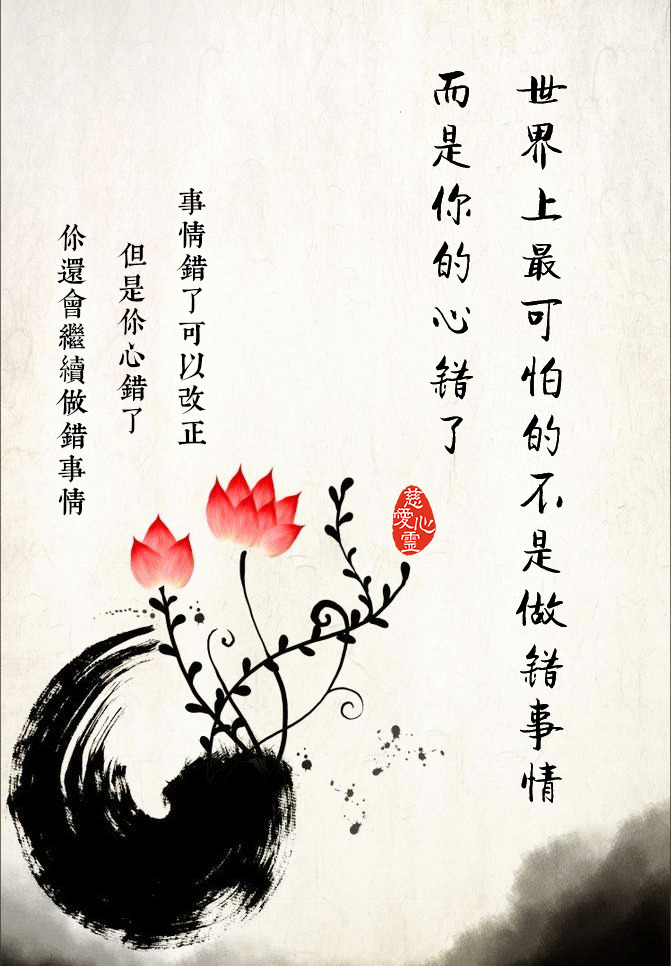 世界上最可怕的不是做錯事情
而是你的心錯了
事情錯了可以改正
但是你心錯了
你還會繼續做錯事情
慈愛心靈